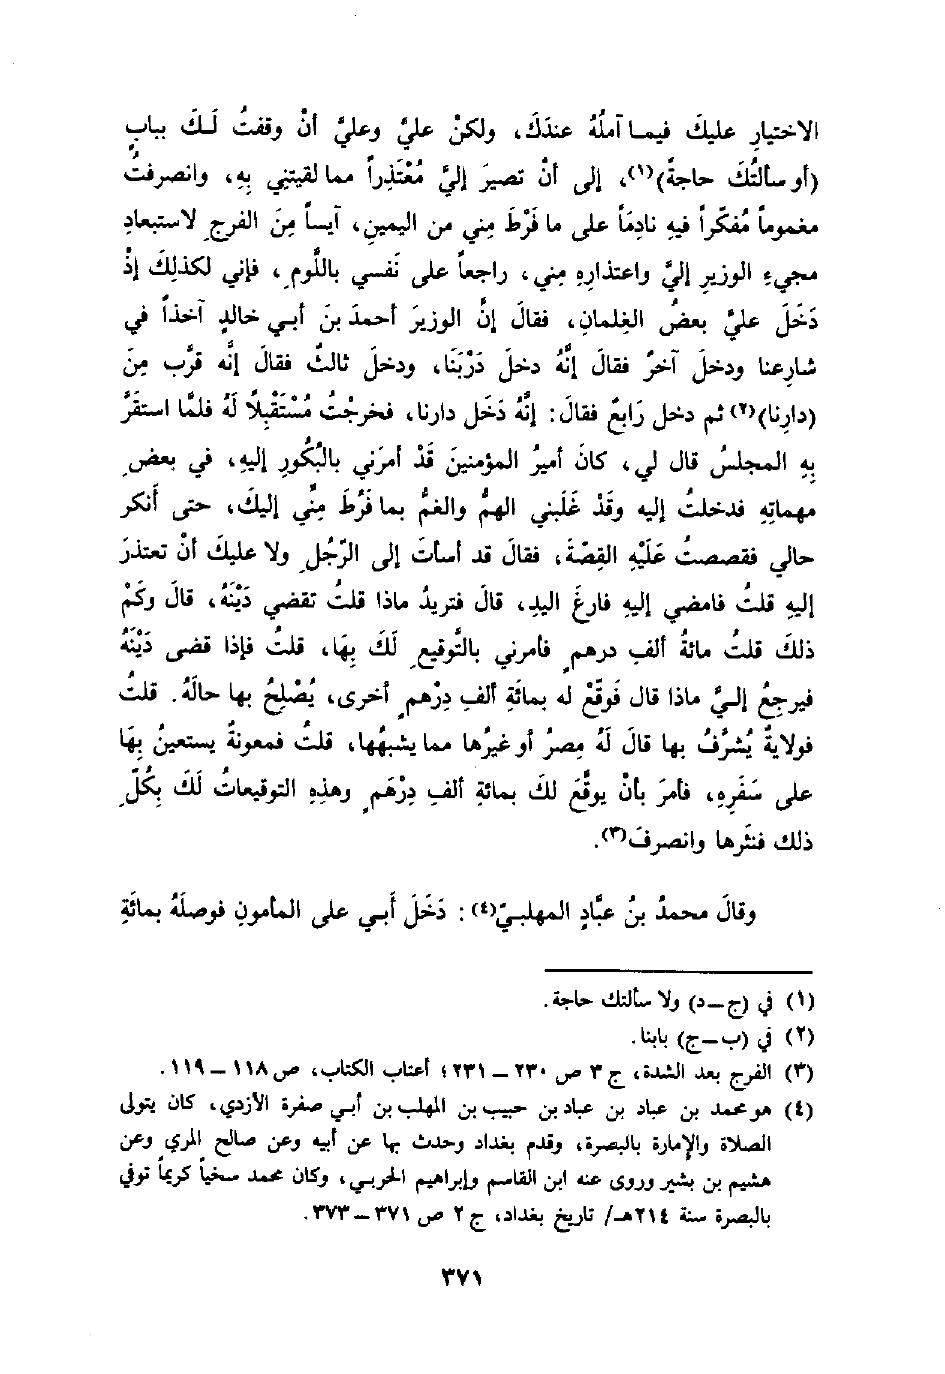 الاختيارِ عليكَ فيمـا آملُهُ عندَكَ، ولكنْ عليَّ وعليَّ أنْ وقفتُ لَـكَ ببابٍ
(أو سألتُكَ حاجةً)(١)، إلى أنْ تصيرَ إليَّ مُعْتَذِراً مما لقيتَنِي بِهِ، وانصرفتُ
مغموماً مُفكّراً فيهِ نادِمَاً على ما فَرْطَ مِني من اليمينِ، آيساً مِنَ الفرجِ لاستبعادِ
مجيءِ الوزيرِ إليَّ واعتذارِهِ مِني، راجعاً على نَفسي باللَّومِ، فإني لكذلِكَ إذْ
دَخَلَ عليَّ بعضُ الغِلمانِ، فقالَ إنَّ الوزيرَ أحمدَ بنَ أبـي خالدٍ آخذاً في
شارعِنا ودخلَ آخرُ فقالَ إنَّهُ دخلَ دَرْبَنَا، ودخلَ ثالثٌ فقالَ إنَّه قرَّب مِنَ
(دارِنا)(٢) ثم دخل رَابعٌ فقالَ: إنَّهُ دَخَل دارنا، فخرجْتُ مُسْتَقْبِلاً لَهُ فلمَّا استقَرَّ
بِهِ المجلسُ قال لي، كانَ أميرُ المؤمنينَ قَدْ أمرَني بالبُكُورِ إليهِ، في بعضِ
مهماتِهِ فدخلتُ إليه وقَدْ غَلَبني الهمُّ والغمُّ بما فَرُطَ مِنَّي إليكَ، حتى أَنكر
حالي فقصصتُ عَلَيْهِ القِصّةَ، فقالَ قد أسأتَ إلى الرّجُلِ ولا عليكَ أنْ تعتذرَ
إليهِ قلتُ فامضي إليهِ فارغَ اليدِ، قالَ فتريدُ ماذا قلتُ تقضي دَيْنَهُ، قالَ وكَمْ
ذلكَ قلتُ مائةُ ألفِ درهمٍ فأمرني بالتَّوقيعِ لَكَ بِهَا، قلتُ فإذا قضى دَيْنَهُ
فيرجِعُ إلـيَّ ماذا قال فَوقّعْ له بمائَةِ ألفِ دِرْهمٍ أخرى، يُصْلِحُ بها حالَهُ. قلتُ
فولايةٌ يُشرُّفُ بها قالَ لَهُ مِصرُ أو غيرُها مما يشبهُها، قلتُ فمعونةٌ يستعينُ بِهَا
على سَفَرِهِ، فأمرَ بأنْ يوقَّعَ لكَ بمائةِ ألفِ دِرْهَمٍ وهذِهِ التوقيعاتُ لَكَ بِكُلِّ
ذلك فنثَرها وانصرفَ(٣).
وقالَ محمدُ بنُ عبَّادٍ المهلبـيّ(٤): دَخَلَ أَبـي على المأمونِ فوصلَهُ بمائَةِ
(١) في (ج ــ د) ولا سألتك حاجة.
(٢) في (ب ــ ج) بابنا.
(٣) الفرج بعد الشدة، ج ٣ ص ٢٣٠ ــ ٢٣١؛ أعتاب الكتاب، ص ١١٨ ــ ١١٩.
(٤) هو محمد بن عباد بن عباد بن حبيب بن المهلب بن أبـي صفرة الأزدي، كان يتولى
الصلاة والإمارة بالبصرة، وقدم بغداد وحدث بها عن أبيه وعن صالح المري وعن
هشيم بن بشير وروى عنه ابن القاسم وإبراهيم الحربـي، وكان محمد سخياً كريماً توفي
بالبصرة سنة ٢١٤هـ/ تاريخ بغداد، ج ٢ ص ٣٧١ ــ ٣٧٣.
٣٧١